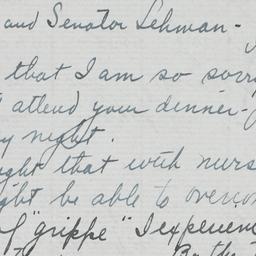 and Senator Lehman -
that I am so sorry
attend your dinner -
night.
that with nurs
be able to overcom
of "grippe" I experien